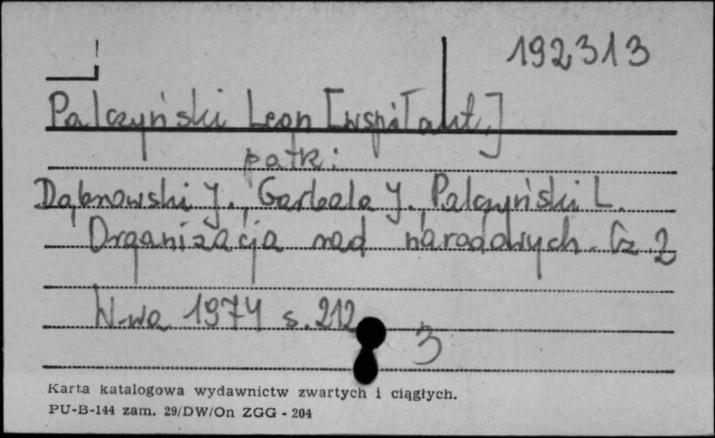 192313
Palczyński Leon [współaut.]
patrz:
Dąbrowski J., Garbala J., Palczyński L.
Organizacja rad narodowych. Cz 2
W-wa 1974 s. 212
3
Karta katalogowa wydawnictw zwartych i ciągłych.
PU-B-144 zam. 29/DW/On ZGG - 204